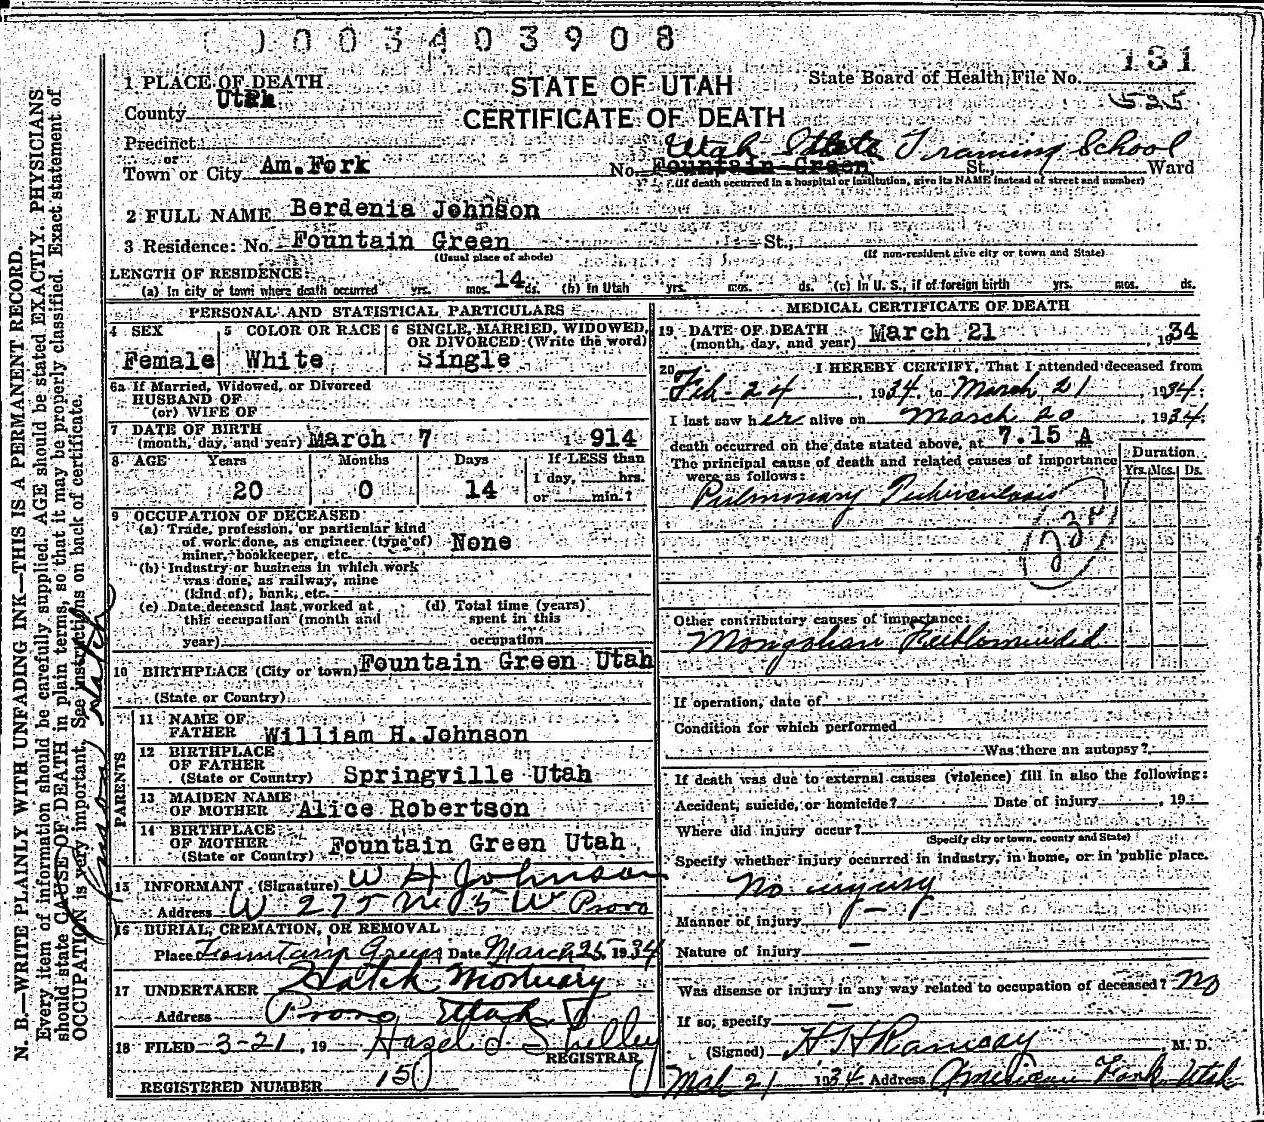 003403908
131
1 PLACE OF DEATH
STATE OF UTAH
State Board of Health File No.
County Utah
CERTIFICATE OF DEATH
525
Precinct
or
Utah State Training School
Town or City Am. Fork No. Fountain Green St., Ward
(If death occurred in a hospital or institution, give its NAME instead of street and number)
2 FULL NAME Berdenia Johnson
3 Residence: No. Fountain Green St.,
(Usual place of abode) (If non-resident give city or town and State)
LENGTH OF RESIDENCE
(a) In city or town where death occurred yrs. mos. 14 ds. (b) In Utah yrs. mos. ds. (c) In U. S., if of foreign birth yrs. mos. ds.
PERSONAL AND STATISTICAL PARTICULARS
4 SEX 5 COLOR OR RACE 6 SINGLE, MARRIED, WIDOWED, OR DIVORCED (Write the word)
Female White Single
6a If Married, Widowed, or Divorced
HUSBAND OF
(or) WIFE OF
7 DATE OF BIRTH
(month, day, and year) March 7 1 914
8 AGE Years Months Days If LESS than
1 day, hrs.
20 0 14 or min.?
9 OCCUPATION OF DECEASED
(a) Trade, profession, or particular kind
of work done, as engineer (type of) None
miner, bookkeeper, etc.
(b) Industry or business in which work
was done, as railway, mine
(kind of), bank, etc.
(c) Date deceased last worked at (d) Total time (years)
this occupation (month and spent in this
year) occupation
10 BIRTHPLACE (City or town) Fountain Green Utah
(State or Country)
PARENTS
11 NAME OF
FATHER William H. Johnson
12 BIRTHPLACE
OF FATHER
(State or Country) Springville Utah
13 MAIDEN NAME
OF MOTHER Alice Robertson
14 BIRTHPLACE
OF MOTHER
(State or Country) Fountain Green Utah
15 INFORMANT (Signature) W H Johnson
Address W 275 N 5 W Provo
16 BURIAL, CREMATION, OR REMOVAL
Place Fountain Green Date March 25, 1934
17 UNDERTAKER Hatch Mortuary
Address Provo Utah
18 FILED 3-21, 19 Hazel J. Skelley
REGISTRAR
REGISTERED NUMBER 150
MEDICAL CERTIFICATE OF DEATH
19 DATE OF DEATH
(month, day, and year) March 21, 1934
20 I HEREBY CERTIFY, That I attended deceased from
Feb - 24, 1934, to March 21 1934.
I last saw her alive on March 20 1934.
death occurred on the date stated above, at 7.15 A
The principal cause of death and related causes of importance
were as follows:
Duration
Yrs. Mos. Ds.
Pulmonary Tuberculosis
Other contributory causes of importance:
Mongolian Feebleminded
If operation, date of
Condition for which performed
Was there an autopsy?
If death was due to external causes (violence) fill in also the following:
Accident, suicide, or homicide? Date of injury , 19
Where did injury occur?
(Specify city or town, county and State)
Specify whether injury occurred in industry, in home, or in public place.
No injury
Manner of injury —
Nature of injury —
Was disease or injury in any way related to occupation of deceased? No
If so, specify —
(Signed) H H Ramsay M. D.
Mch 21 1934 Address American Fork Utah
N. B.—WRITE PLAINLY WITH UNFADING INK—THIS IS A PERMANENT RECORD.
Every item of information should be carefully supplied. AGE should be stated EXACTLY. PHYSICIANS
should state CAUSE OF DEATH in plain terms, so that it may be properly classified. Exact statement of
OCCUPATION is very important. See instructions on back of certificate.